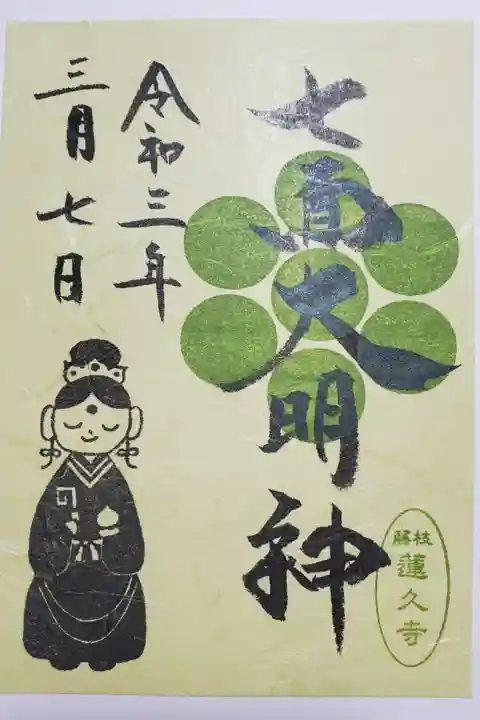 七面大明神
藤枝
蓮久寺
令和三年
三月七日